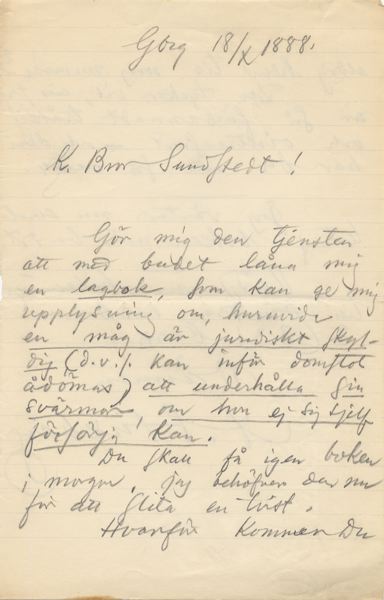 Gbrg 18/X 1888.
K. Bror Sundstedt!
Gör mig den tjensten
att med budet låna mig
en lagbok, som kan ge mig
upplysning om, huruvida
en måg är juridiskt skyl-
dig (d.v.s. kan inför domstol
ådömas) att underhålla sin
svärmor, om hon ej sig sjelf
försörja kan.
Du skall få igen boken
i morgon, jag behöfver den nu
för att slita en tvist.
Hvarför kommer Du